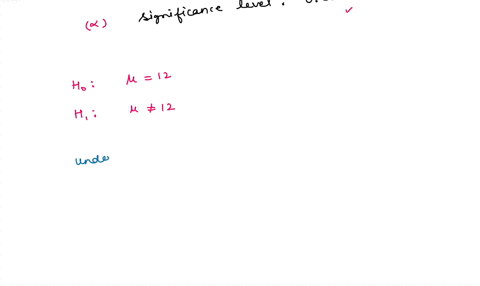 (α) significance level :
H₀ : μ = 12
H₁ : μ ≠ 12
unde